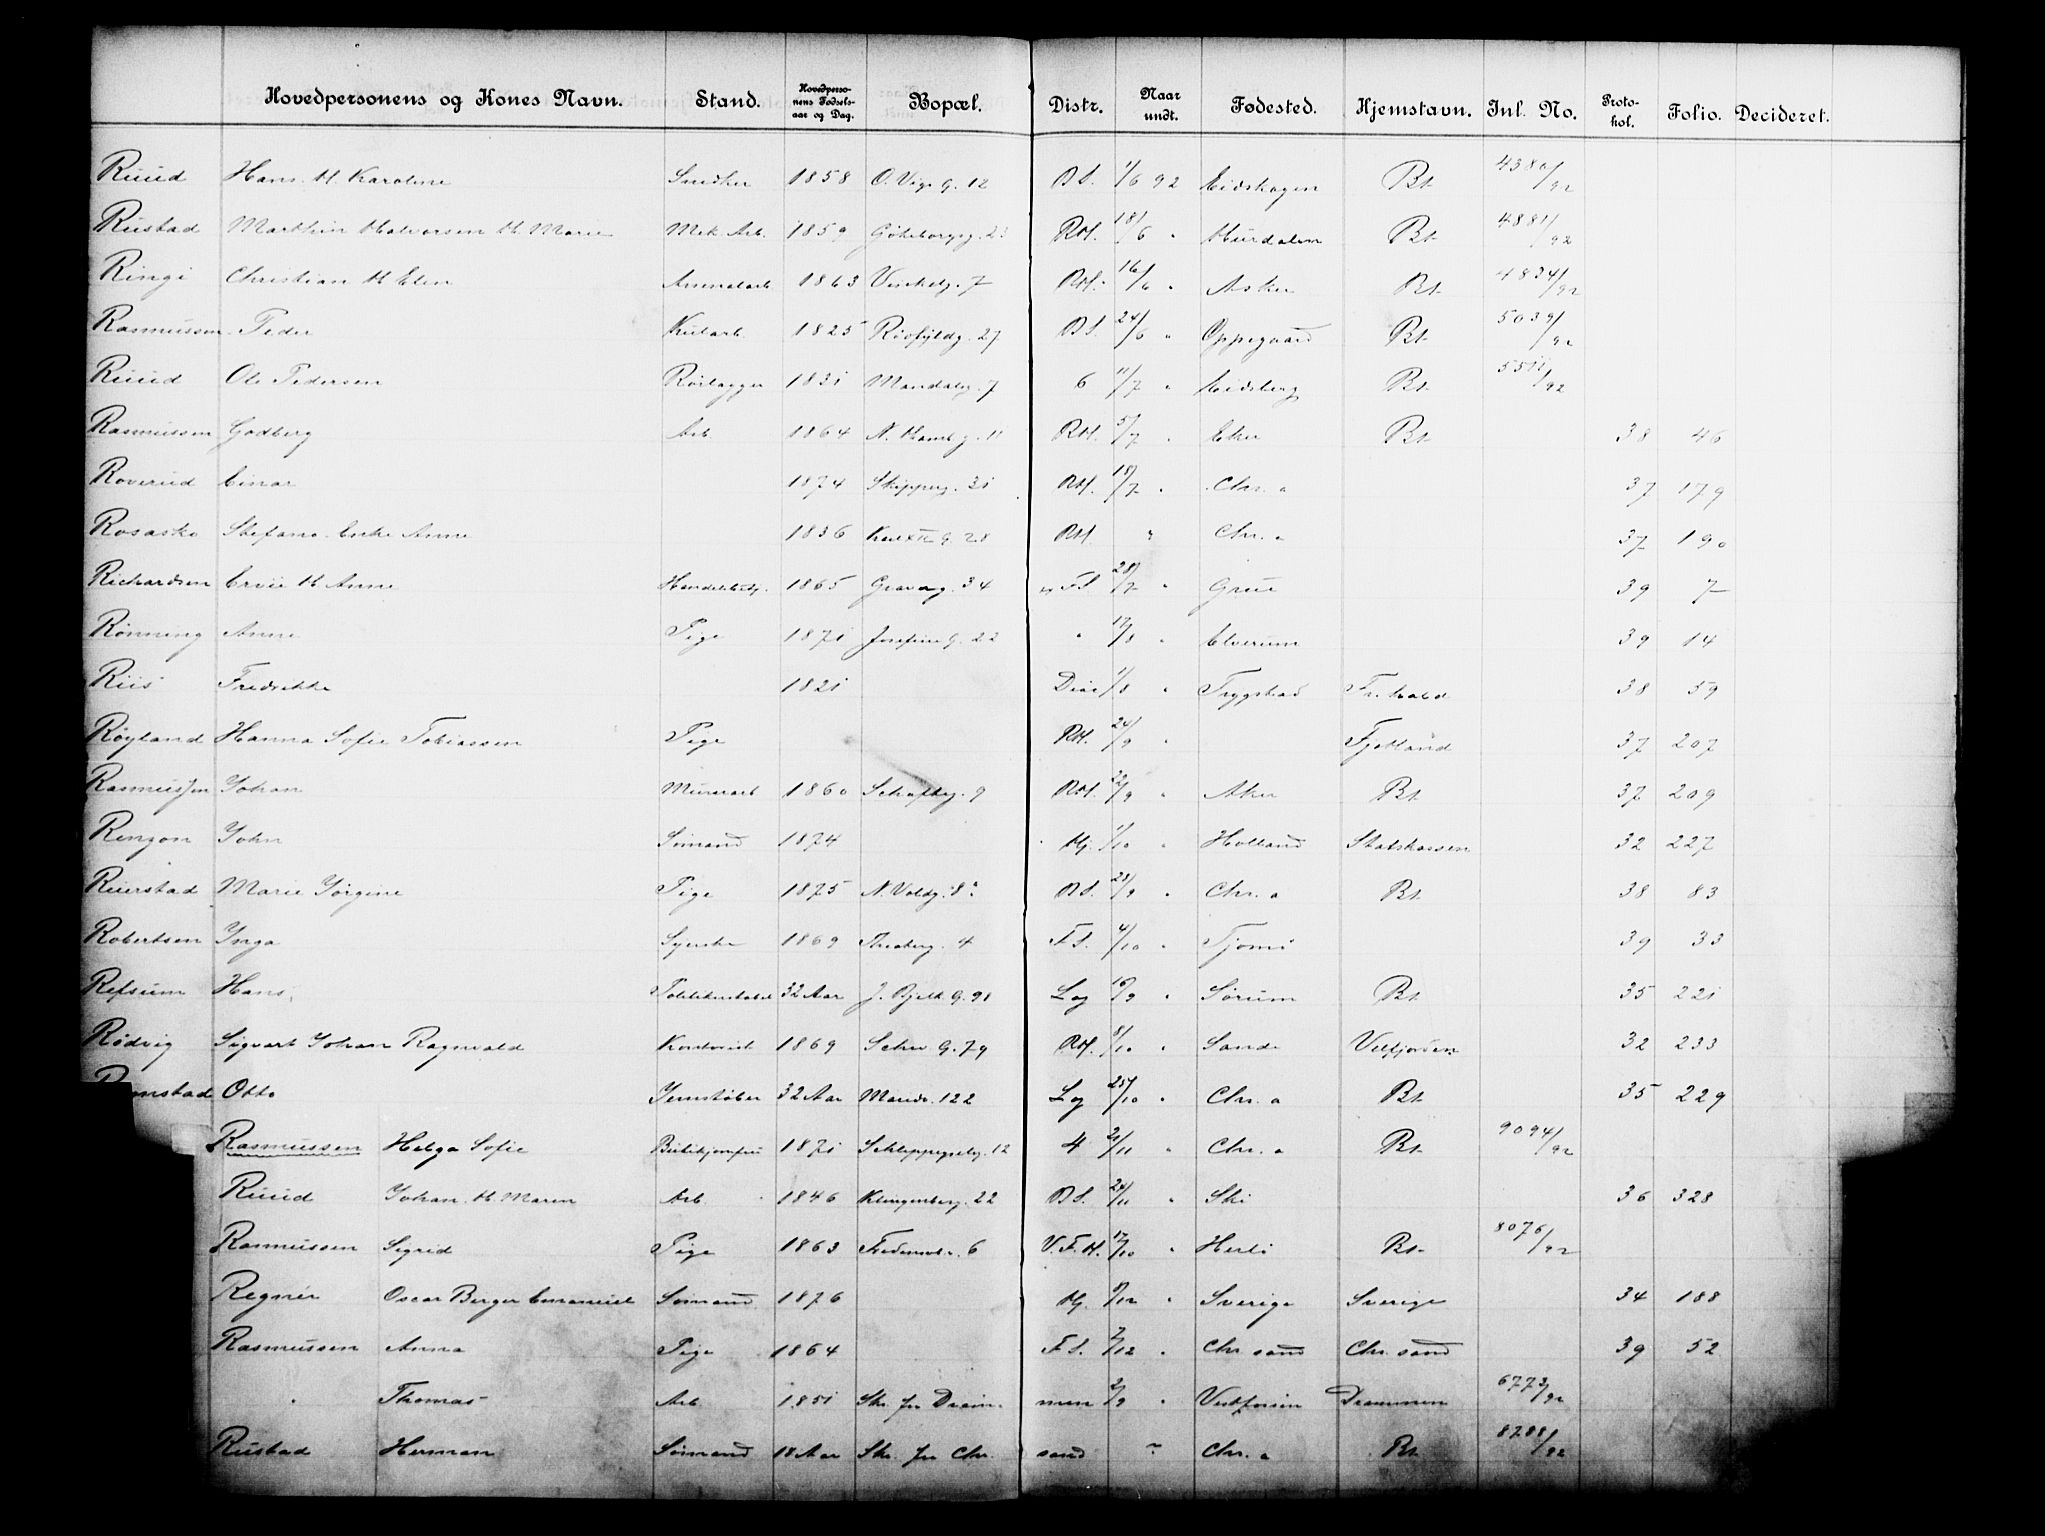 Hovedpersonens og Kones Navn. Stand. Hovedperso-nens Fødsels-aar og Dag. Bopæl. Distr. Naar undt. Fødested. Hjemstavn. Inl. No. Proto-kol. Folio. Decideret.
Ruud Hans. H. Karoline Snedker 1858 O. Vigs G. 12 B S. 1/6 92 Eidskogen Bt. 4380/92
Rustad Marthin Halvorsen H. Marie Mek. Arb. 1859 Gøteborgsg. RH. 18/6 " Hurdalen Bt. 4881/92
Ringi Christian H Elen Arsenalarb 1863 Vinkelg. 7 RH. 16/6 " Asker Bt. 4834/92
Rasmussen Peder Kularb. 1825 27 B S. 24/6 " Oppegaard Bt. 5039/92
Ruud Ole Pedersen Rørlægger 1831 Mandalsg. 7 6 11/7 " Eidsberg Bt. /92
Rasmussen Godberg Arb. 1864 N. Hamb g. 11 RH. 5/7 " Eker Bt. 38 46
Roverud Einar 1874 Skipperg. 31 RH. 18/7 " Chr. a 37 179
Rosasko Stefano. Enke Anne 1836 Karl XII G. 28 RH. " Chr. a 37 190
Richardsen H Anne 1865 34 F S 28/7 " Grue 39 7
Rønning Anne Pige 1871 Josefine G. 22 " 17/8 " Elverum 39 14
Riis Fredrikke 1821 1/8 " Trygstad Fr. hald 38 59
Røyland Hanna Sofie Tobiassen Pige RH. 24/9 " Fjotland 37 207
Rasmussen Johan Murerarb 1860 9 RH. 22/9 " Aker Bt. 37 209
Rengon John Sømand 1874 Hj. 1/10 " Holland Statskassen 32 227
Ruerstad Marie Jørgine Pige 1875 N. Voldg. 8 B S. 28/9 " Chr. a Bt. 38 83
Robertsen Inga Syerske 1869 4 F S. 4/10 " Tjømø 39 33
Refsum Hans, Politikonstabel 32 Aar J. Bjelk. G. Log 16/9 " Sørum Bt. 35 221
Rødvig Sigvart Johan Ragnvald Kontorist 1869 Schw G. 79 RH. 8/10 " Sande Velfjorden 32 233
mstad Otto Jernstøber 32 Aar Marids. 122 Log 25/10 " Chr. a Bt. 35 229
Rasmussen Helga Sofie Butikjomfru 1871 Schleppegrelsg. 12 4 21/11 " Chr. a Bt. 9094/92
Ruud Johan. H. Maren Arb. 1846 Klingenberg. 22 B S. 24/11 " Ski 36 328
Rasmussen Sigrid Pige 1863 6 V. F. H. 17/10 " Herlø Bt. 8076/92
Regnér Oscar Berger Emanuel Sømand 1876 Hj. 8/12 " Sverige Sverige 34 188
Rasmussen Anna Pige 1864 F S. 7/12 " Chr. sand Chr. sand 39 52
" Thomas Arb. 1851 Skr. fra Dram-men 2/9 " Vestfossen Drammen 6773/92
Rustad Herman Sømand 18 Aar Skr. fra Chr. sand " Chr. a Bt. 8288/92